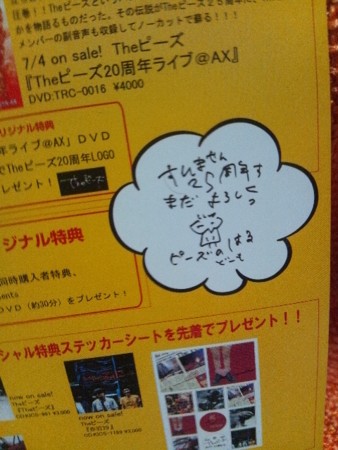 圧巻!!Theピーズという
かを物語るものだった。その伝説がTheピーズ25周年に、
メンバーの副音声も収録してノーカットで蘇る!!!
7/4 on sale! Theピーズ
『Theピーズ20周年ライブ@AX』
DVD:TRC-0016 ¥4000
リジナル特典
年ライブ@AX」DVD
でTheピーズ20周年LOGO
レゼント!
Theピーズ
すいません
25周年す
まだ よろしく
ピーズのはる
どーも
ジナル特典
同時購入者特典。
ents
DVD(約30分)をプレゼント!
シャル特典ステッカーシートを先着でプレゼント!!
now on sale!
Theピーズ
now on sale!
Theピーズ